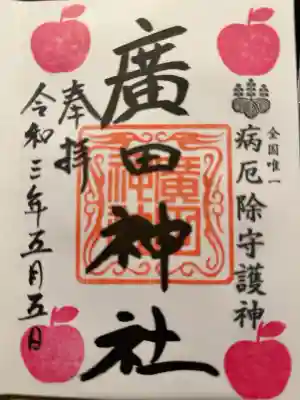 全国唯一
病厄除守護神
廣田神社
奉拝
令和三年五月五日